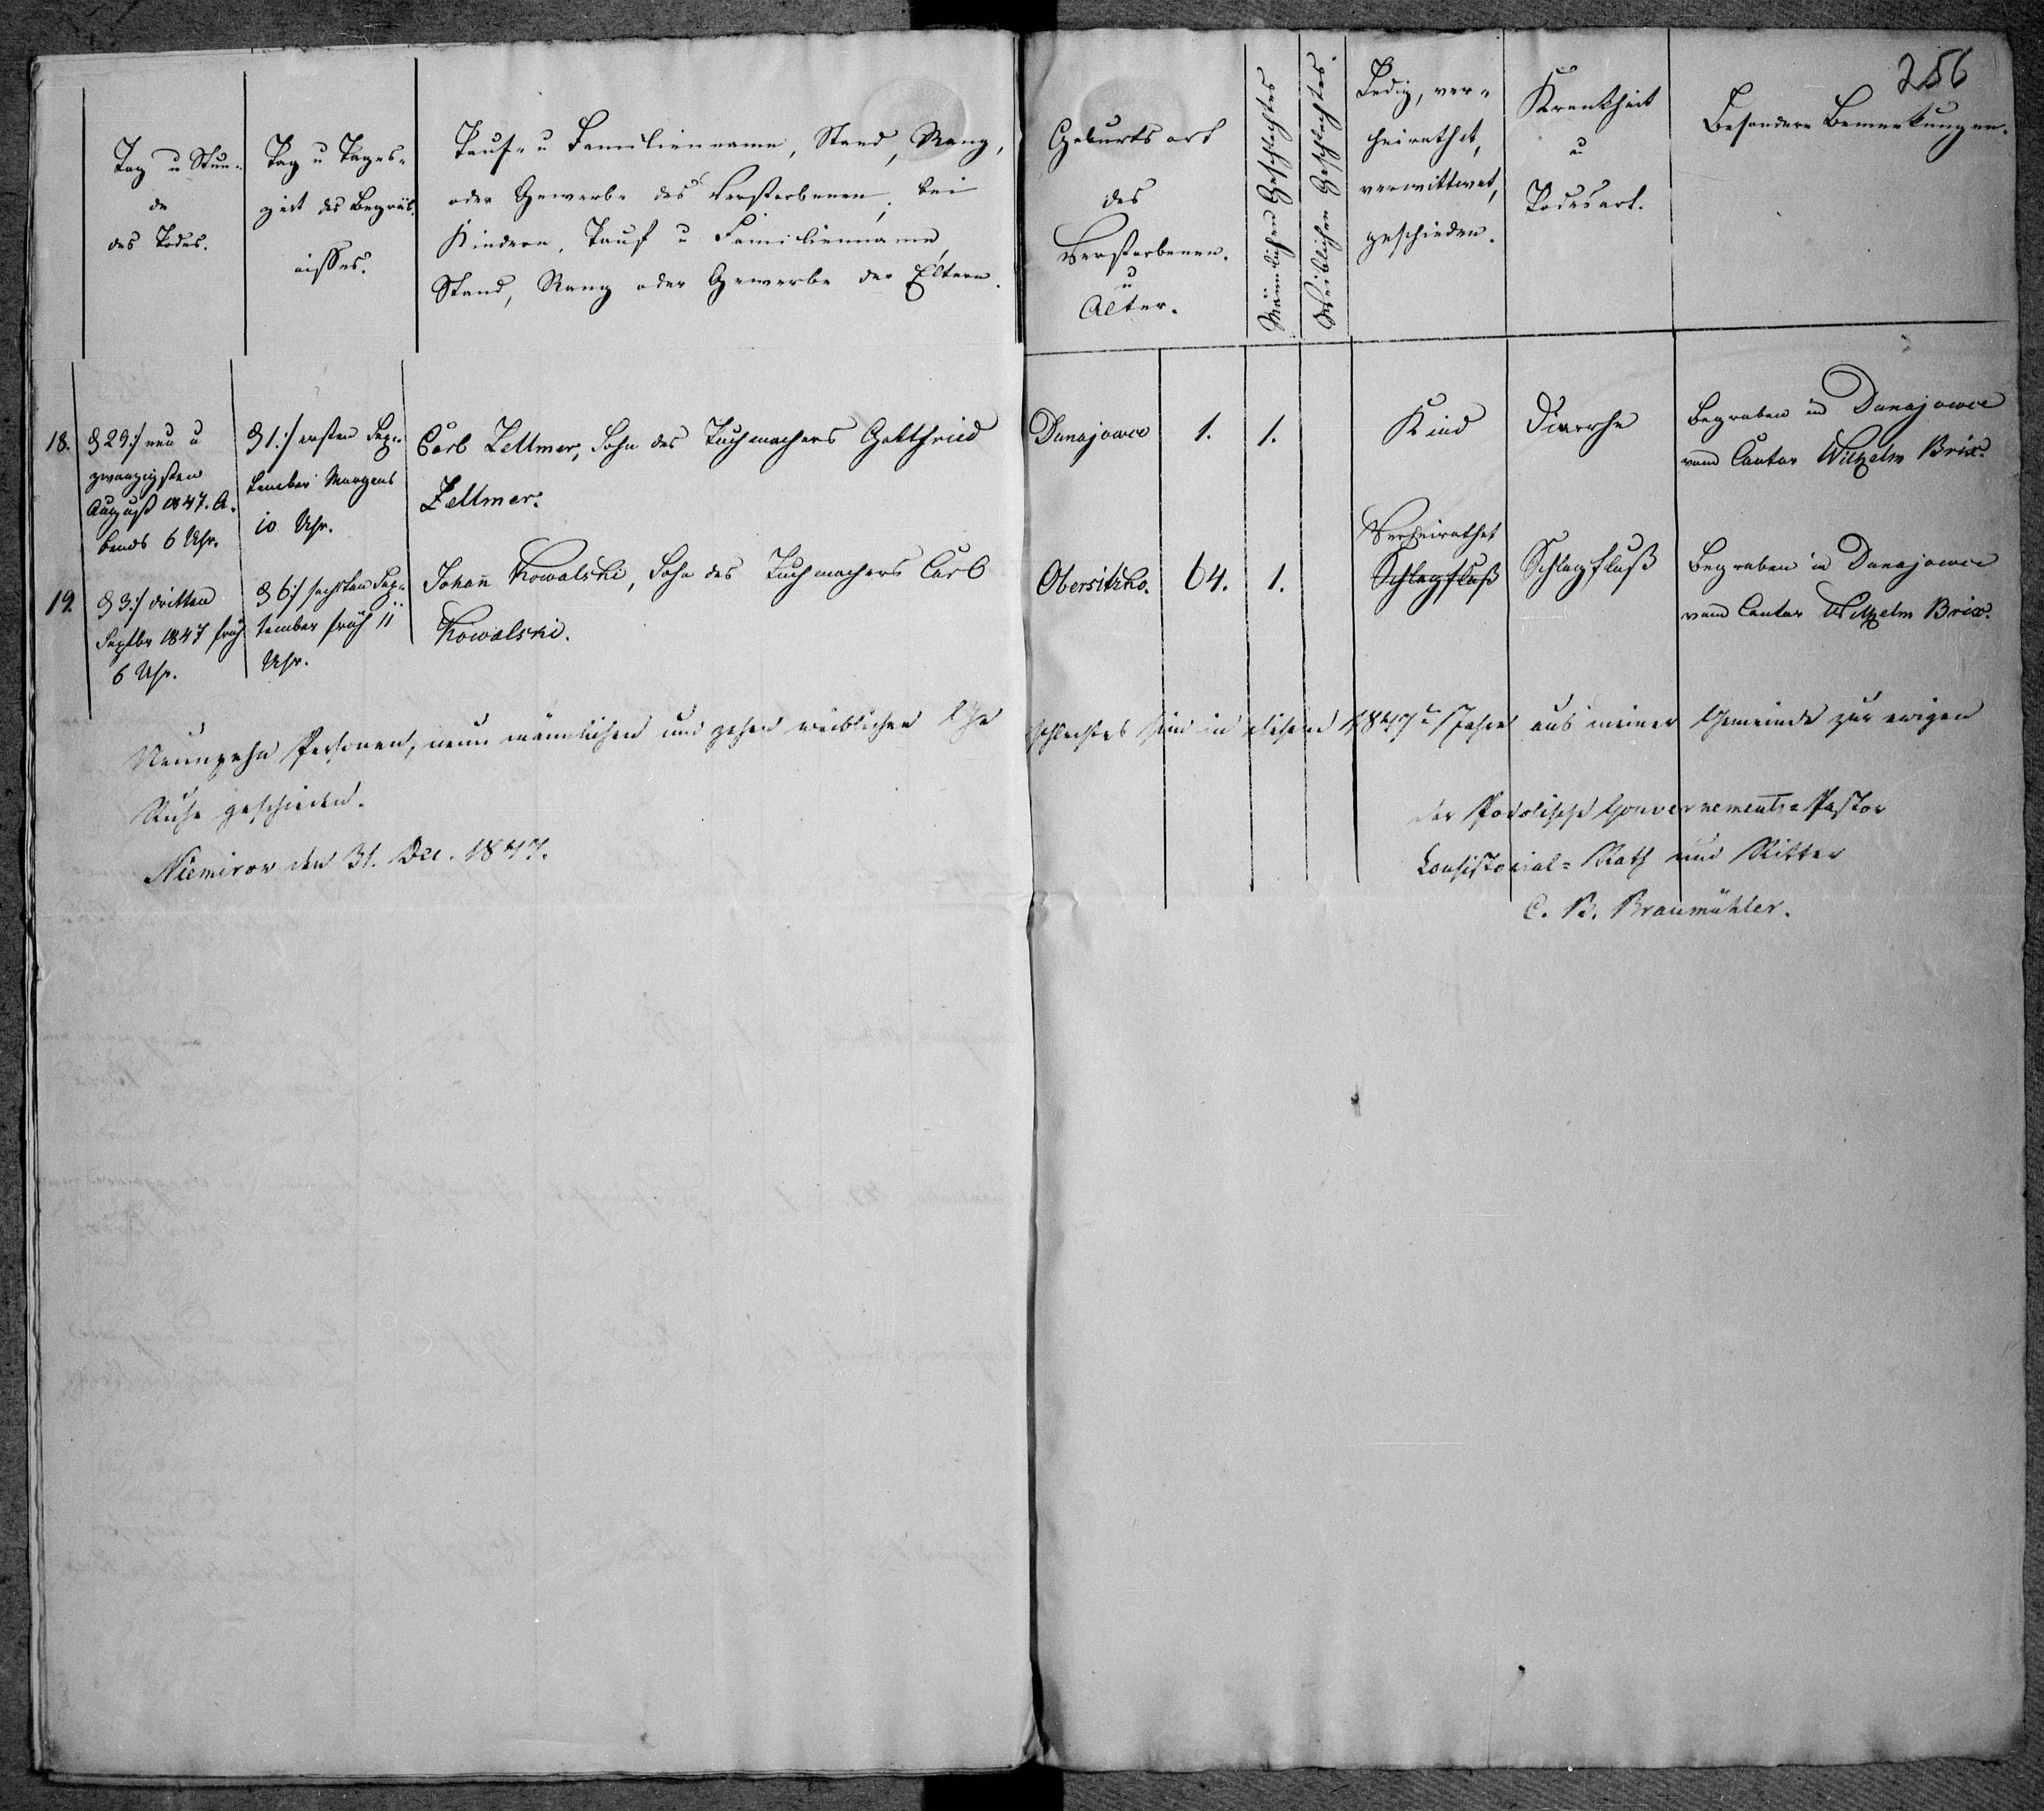 256
Tag u Stun-
de
des Todes.
Tag u Tages-
zeit des Begräb-
nisses.
Tauf- u Familienname, Stand, Rang,
oder Gewerbe des Verstorbenen, bei
Kindern, Tauf u Familienname,
Stand, Rang oder Gewerbe der Eltern.
Geburtsort
des
Verstorbenen.
u
Alter.
Männlichen Geschlechtes
Weiblichen Geschlechtes.
Ledig, ver-
heirathet,
verwittwet,
geschieden.
Krankheit
u
Todesart.
Besondere Bemerkungen.
18.
d 29:/ neu u
zwanzigsten
August 1847. A-
bends 6 Uhr.
d 1:/ ersten Sep-
tember Morgens
10 Uhr.
Carl Zellmer, Sohn des Tuchmachers Gottfried
Zellmer.
Dunajowce
1.
1.
Kind
Diarrhe
Begraben in Dunajowce
vom Cantor Wilhelm Brix.
19.
d 3:/ dritten
Septbr 1847 früh
6 Uhr.
d 6:/ sechsten Sep-
tember früh 11
Uhr.
Johann Kowalski, Sohn des Tuchmachers Carl
Kowalski.
Obersitzko.
64.
1.
Verheirathet
Schlagfluß
Schlagfluß
Begraben in Dunajowce
vom Cantor Wilhelm Brix.
Neunzehn Personen, neun männlichen und zehen weiblichen Ge
schlechtes sind in diesem 1847n Jahre aus meiner Gemeinde zur ewigen
Ruhe geschieden.
Niemirow den 31. Dec. 1847.
Der Podolische Gouvernements-Pastor
Consistorial-Rath und Ritter
C. B. Braumühler.